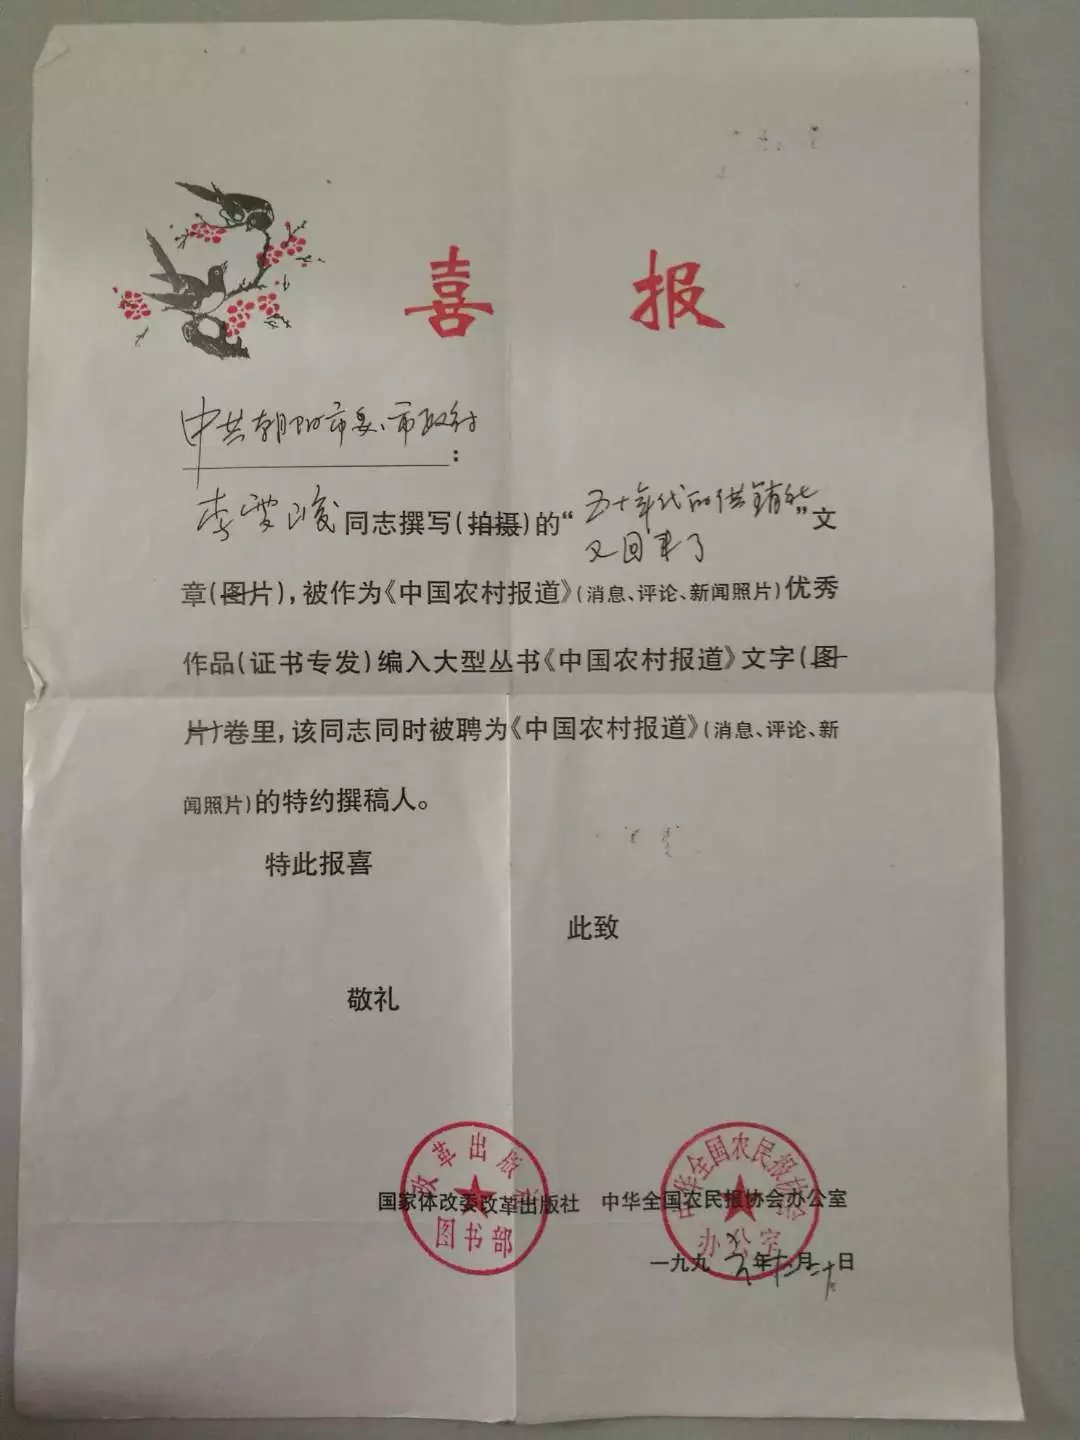 喜报
中共朝阳市委、市政府
：
李雯峻同志撰写(拍摄)的“五十年代的供销社又回来了”文
章(图片)，被作为《中国农村报道》(消息、评论、新闻照片)优秀
作品(证书专发)编入大型丛书《中国农村报道》文字(图
片)卷里，该同志同时被聘为《中国农村报道》(消息、评论、新
闻照片)的特约撰稿人。
特此报喜
此致
敬礼
改革出版社
图书部
中华全国农民报协会
办公室
国家体改委改革出版社 中华全国农民报协会办公室
一九九 年十二月二十日